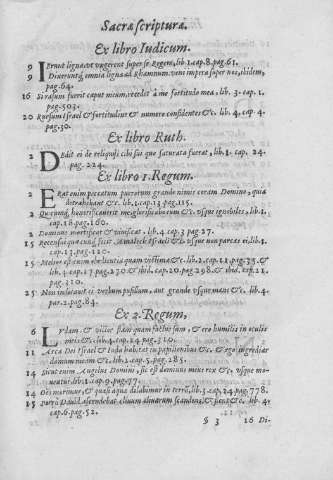 Sacræ scripturæ.
Ex libro Iudicum.
9 Ierunt ligna, vt vngerent super se Regem, lib.1. cap.8. pag.61.
9 Dixeruntq; omnia ligna ad Rhamnum. veni impera super nos, ibidem,
pag.64.
16 Si rasum fuerit caput meum, recedet à me fortitudo mea, lib. 3. cap. 1.
pag.503.
20 Rursum Israel & fortitudine & numero confidentes &c. lib. 4. cap. 4.
pag.30.
Ex libro Ruth.
2 Dedit ei de reliquijs cibi sui quo saturata fuerat, lib. 1. cap. 24.
pag. 224.
Ex libro 1. Regum.
2 Erat enim peccatum puerorum grande nimis coram Domino, quia
detrahebant &c. lib.1. cap.13. pag.115.
2 Quicunq; honorificauerit me, glorificabo eum &c. vsque ignobiles, lib.1.
cap.18. pag.160.
2 Dominus mortificat & viuificat, lib.4. cap.3. pag.27.
15 Recensui quæcunq; fecit Amalech Israeli & vsque non parcas ei, lib.1.
cap.13. pag.120.
15 Melior est enim obedientia quam victima &c. lib.2. cap.11. pag.35. &
lib.3. cap.17. pag.270 & ibid. cap.20. pag.298. & ibid. cap.21.
pag.310.
25 Non indicauit ei verbum pusillum, aut grande vsque mane &c. lib.4.
cap.2. pag.84.
Ex 2. Regum,
6 Ludam, & vilior fiam quam factus sum, & ero humilis in oculis
meis &c. lib.4. cap.24. pag.310.
11 Arca Dei Israel & Iuda habitat in papilionibus &c. & ego ingrediar
domum meam &c. lib.2. cap.5. pag.285.
14 Sicut enim Angelus Domini, sic est dominus meus rex &c. vsque mo-
ueatur, lib.1. cap.9. pag.77.
14 Oēs morimur, & quasi aquæ dilabimur in terrā, lib.3. cap.24. pag.778.
15 Porrò Dauid ascendebat cliuum oliuarum scandens, & flens &c. lib. 4.
cap.6. pag.52.
§ 3 16 Di-